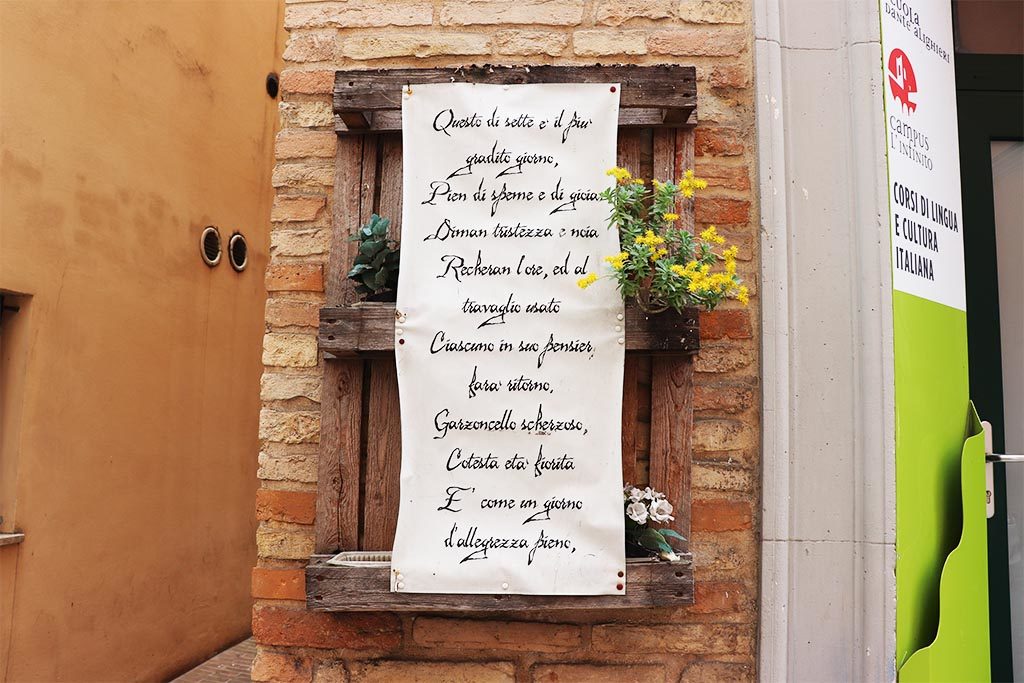 Questo di sette e' il piu'
gradito giorno,
Pien di speme e di gioia:
Diman tristezza e noia
Recheran l'ore, ed al
travaglio usato
Ciascuno in suo pensier
fara' ritorno.
Garzoncello scherzoso,
Cotesta eta' fiorita
E' come un giorno
d'allegrezza pieno,
SCUOLA
DANTE ALIGHIERI
CAMPUS
L'INFINITO
CORSI DI LINGUA
E CULTURA
ITALIANA